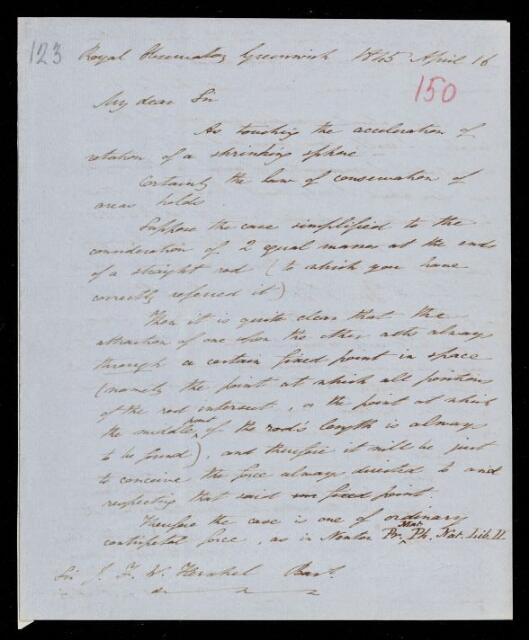 123 Royal Observatory Greenwich 1845 April 16
150
My dear Sir
As touching the acceleration of
rotation of a shrinking sphere
Certainly the law of conservation of
areas holds
Suppose the case simplified to the
consideration of 2 equal masses at the ends
of a straight rod (to which you have
correctly referred it)
Then it is quite clear that the
attraction of one upon the other acts always
through a certain fixed point in space
(namely the point at which all positions
of the rod intersect, or the point at which
the middle point of the rod's length is always
to be found), and therefore it will be just
to conceive the force always directed to and
respecting that said fixed point.
Therefore the case is one of ordinary
centripetal force, as in Newton Pr. Mat. Ph. Nat. Lib. II.
Sir J. F. W. Herschel Bart.